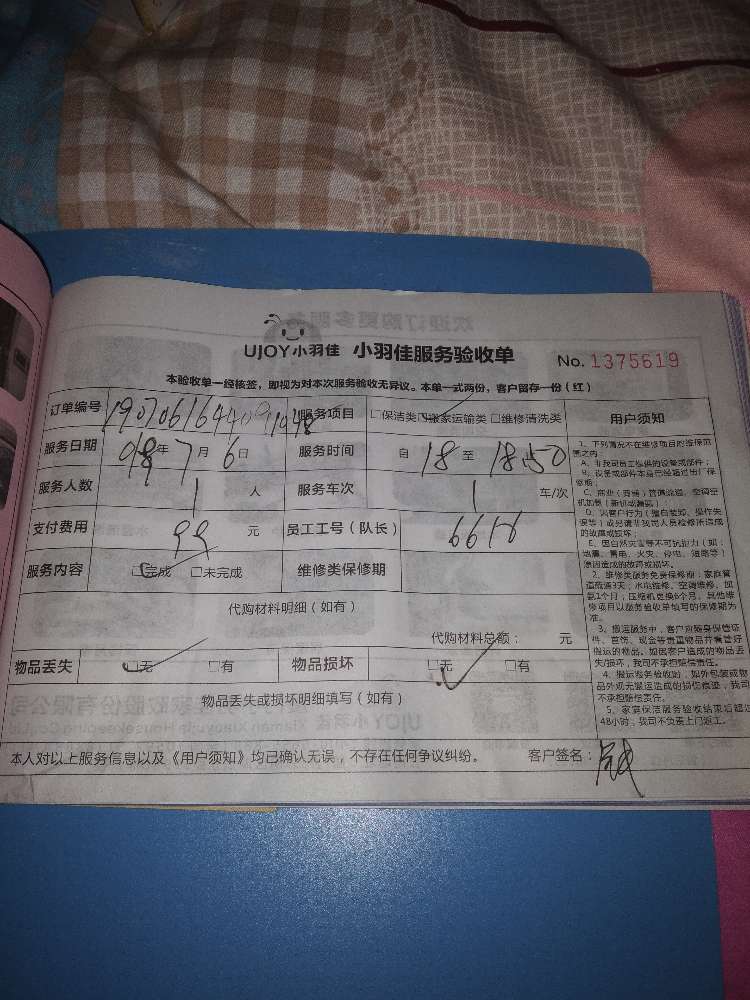 UJOY小羽佳 小羽佳服务验收单 No. 1375619
本验收单一经核签，即视为对本次服务验收无异议。本单一式两份，客户留存一份（红）
订单编号 服务项目 □保洁类 □搬家运输类 □维修清洗类 用户须知
服务日期 年 7 月 6 日 服务时间 自 18 至 18:50
服务人数 1 人 服务车次 1 车/次
支付费用 99 元 员工工号（队长） 6616
服务内容 □完成 □未完成 维修类保修期
代购材料明细（如有）
代购材料总额： 元
物品丢失 □无 □有 物品损坏 □无 □有
物品丢失或损坏明细填写（如有）
1、下列情况不在维修项目的维保范围之内
A、非我司员工提供的设备或部件；
B、设备或部件本身已经超过出厂保修期；
D、因客户行为（擅自装卸、操作失误等）或另请非我司人员检修所造成的故障或损坏；
E、因自然灾害等不可抗拒力（如：地震、雷电、火灾、停电、短路等）原因造成的故障或损坏。
2、维修类服务免费保修期：家庭管道疏通3天；水电维修、空调维修、加氨1个月；压缩机更换6个月。其他维修项目以服务验收单填写的保修期为准。
3、搬运服务中，客户应随身保管证件、首饰、现金等贵重物品并看管好搬运的物品。如因客户造成的物品丢失/损坏，我司不承担赔偿责任。
4、搬运服务验收时，如外包装或物品外观无搬运造成的损伤痕迹，我司不承担赔偿责任。
5、家庭保洁服务验收结束后超过48小时，我司不负责上门返工。
本人对以上服务信息以及《用户须知》均已确认无误，不存在任何争议纠纷。 客户签名：